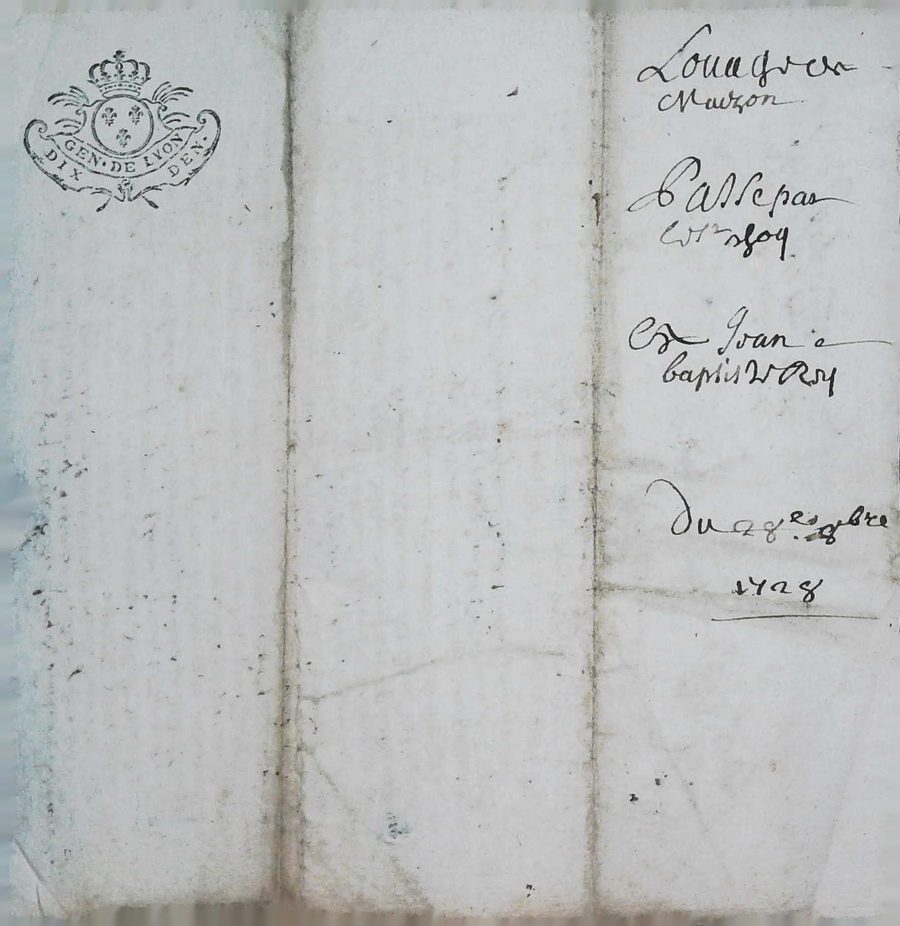 GEN·DE LYON
DIX DEN·
Louage de
Maizon
Passé par
Et Jean
baptiste Roy
Du 28e 8bre
1728